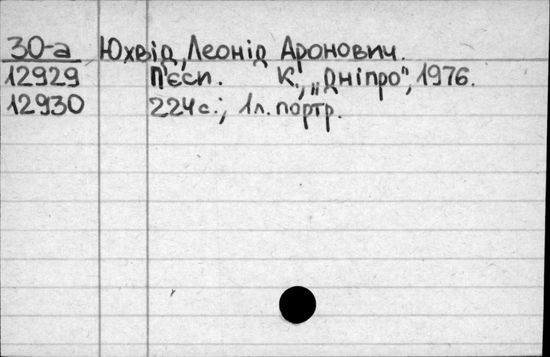 30-а Юхвід, Леонід Аронович.
12929 П'єси. К., „Дніпро", 1976.
12930 224 с.; 1 л. портр.